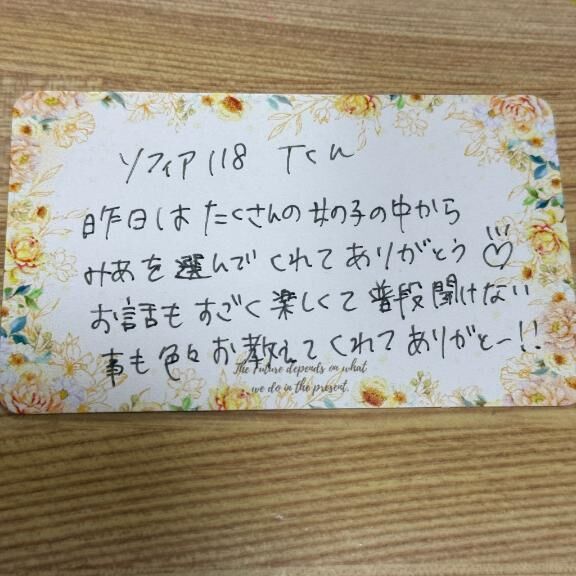 ソフィア118 Tくん
昨日はたくさんの女の子の中から
みあを選んでくれてありがとう♡
お話もすごく楽しくて普段聞けない
事も色々お教えてくれてありがとー!!
The Future depends on what
we do in the present.